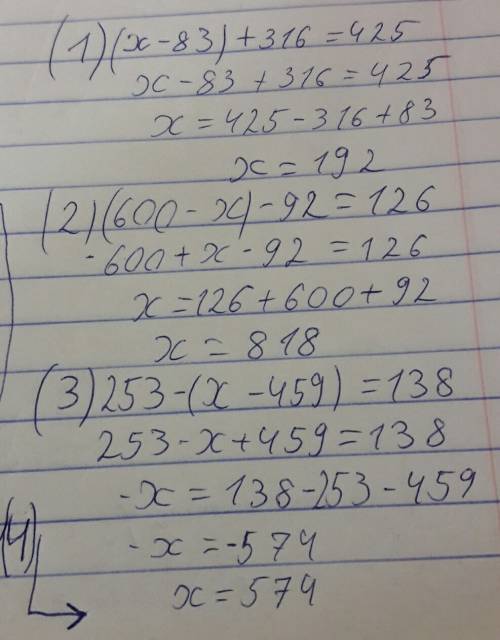 (1) (x - 83) + 316 = 425
x - 83 + 316 = 425
x = 425 - 316 + 83
x = 192
(2) (600 - x) - 92 = 126
- 600 + x - 92 = 126
x = 126 + 600 + 92
x = 818
(3) 253 - (x - 459) = 138
253 - x + 459 = 138
- x = 138 - 253 - 459
(4) - x = -574
x = 574